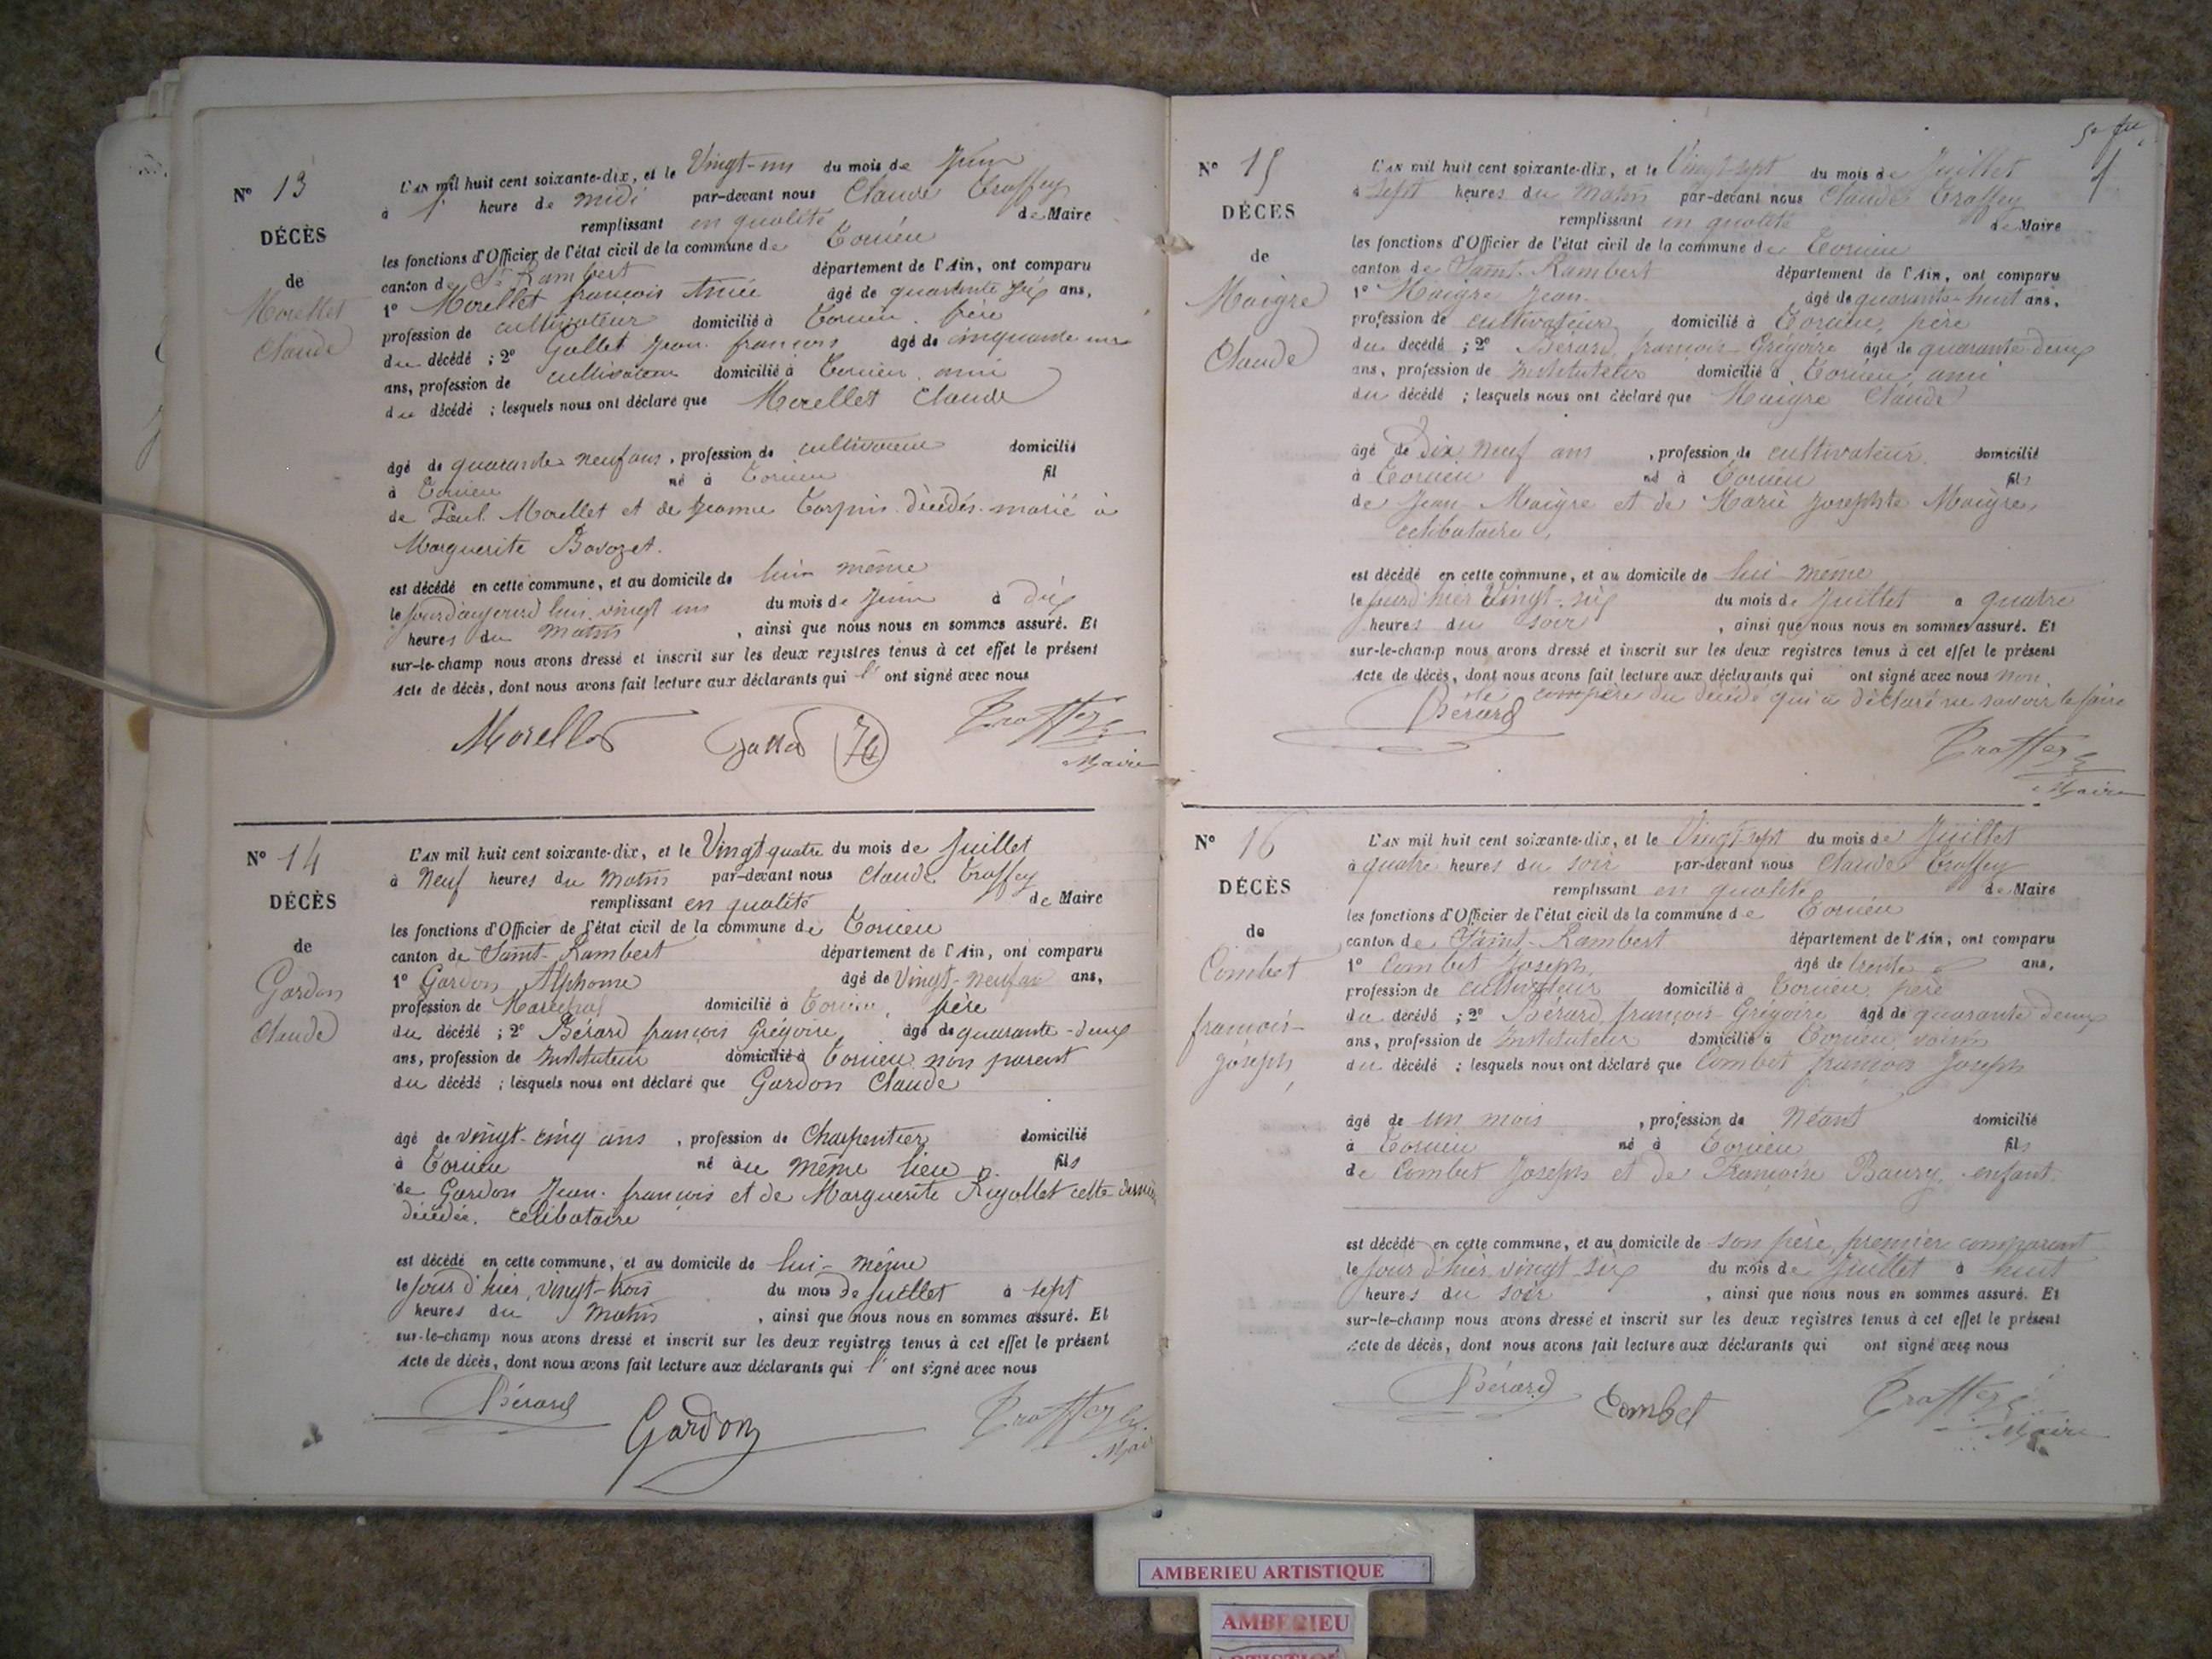 N° 13
DÉCÈS
de
Morellet
Claude
L'AN mil huit cent soixante-dix, et le Vingt-un du mois de Juin
à 1 heure de midi par-devant nous Claude Traffey
remplissant en qualité de Maire
les fonctions d'Officier de l'état civil de la commune de Torcieu
canton de St Rambert département de l'Ain, ont comparu
1° Morellet françois Aimée âgé de quarante six ans,
profession de cultivateur domicilié à Torcieu. frère
du décédé ; 2° Gallet Jean françois âgé de cinquante
ans, profession de cultivateur domicilié à Torcieu. ami
du décédé ; lesquels nous ont déclaré que Morellet Claude
âgé de quarante neuf ans, profession de cultivateur domicilié
à Torcieu né à Torcieu fil
de Paul Morellet et de Jeanne décédés. marié à
Marguerite Bavozet.
est décédé en cette commune, et au domicile de lui même
le jourd'aujourd'hui vingt un du mois de Juin à dix
heures du matin, ainsi que nous nous en sommes assuré. Et
sur-le-champ nous avons dressé et inscrit sur les deux registres tenus à cet effet le présent
Acte de décès, dont nous avons fait lecture aux déclarants qui l' ont signé avec nous
Morellet Gallet Traffey
Maire
N° 14
DÉCÈS
de
Gardon
Claude
L'AN mil huit cent soixante-dix, et le Vingt quatre du mois de Juillet
à Neuf heures du matin par-devant nous Claude Traffey
remplissant en qualité de Maire
les fonctions d'Officier de l'état civil de la commune de Torcieu
canton de Saint-Rambert département de l'Ain, ont comparu
1° Gardon Alphonse âgé de Vingt-neuf ans ans,
profession de Maréchal domicilié à Torcieu, frère
du décédé ; 2° Bérard françois Grégoire âgé de quarante-deux
ans, profession de Instituteur domicilié à Torcieu non parent
du décédé ; lesquels nous ont déclaré que Gardon Claude
âgé de vingt-cinq ans, profession de Charpentier domicilié
à Torcieu né au même lieu fils
de Gardon Jean-françois et de Marguerite Rigollet cette dernière
décédée. célibataire
est décédé en cette commune, et au domicile de lui-même
le jour d'hier, vingt-trois du mois de Juillet à sept
heures du matin, ainsi que nous nous en sommes assuré. Et
sur-le-champ nous avons dressé et inscrit sur les deux registres tenus à cet effet le présent
Acte de décès, dont nous avons fait lecture aux déclarants qui l' ont signé avec nous
Bérard Gardon Traffey
Maire
N° 15
DÉCES
de
Maigre
Claude
L'AN mil huit cent soixante-dix, et le Vingt-sept du mois de Juillet
à Sept heures du matin par-devant nous Claude Traffey
remplissant en qualité de Maire
les fonctions d'Officier de l'état civil de la commune de Torcieu
canton de Saint-Rambert département de l'Ain, ont comparu
1° Maigre Jean âgé de quarante-huit ans,
profession de cultivateur domicilié à Torcieu, père
du décédé ; 2° Bérard françois Grégoire âgé de quarante deux
ans, profession de Instituteur domicilié à Torcieu ami
du décédé ; lesquels nous ont déclaré que Maigre Claude
âgé de Dix neuf ans, profession de cultivateur domicilié
à Torcieu né à Torcieu fils
de Jean Maigre et de Marie Josephte Maigre
célibataire,
est décédé en cette commune, et au domicile de lui-même
le jourd'hier Vingt-six du mois de Juillet à quatre
heures du soir, ainsi que nous nous en sommes assuré. Et
sur-le-champ nous avons dressé et inscrit sur les deux registres tenus à cet effet le présent
Acte de décès, dont nous avons fait lecture aux déclarants qui ont signé avec nous non
père du décédé qui a déclaré ne savoir le faire
Bérard
Traffey
Maire
N° 16
DÉCÈS
de
Combet
françois-
joseph,
L'AN mil huit cent soixante-dix, et le Vingt-sept du mois de Juillet
à quatre heures du soir par-devant nous Claude Traffey
remplissant en qualité de Maire
les fonctions d'Officier de l'état civil de la commune de Torcieu
canton de Saint-Rambert département de l'Ain, ont comparu
1° Combet Joseph, âgé de trente ans,
profession de cultivateur domicilié à Torcieu, père
du décédé ; 2° Bérard, françois-Grégoire âgé de quarante deux
ans, profession de Instituteur domicilié à Torcieu, voisin
du décédé ; lesquels nous ont déclaré que Combet françois Joseph
âgé de un mois, profession de Néant domicilié
à Torcieu né à Torcieu fils
de Combet Joseph et de Françoise enfant.
est décédé en cette commune, et au domicile de son père, premier comparant
le Jour d'hier, vingt-six du mois de Juillet à huit
heures du soir, ainsi que nous nous en sommes assuré. Et
sur-le-champ nous avons dressé et inscrit sur les deux registres tenus à cet effet le présent
Acte de décès, dont nous avons fait lecture aux déclarants qui ont signé avec nous
Bérard Combet Traffey
Maire
AMBERIEU ARTISTIQUE
AMBERIEU
ARTISTIQUE